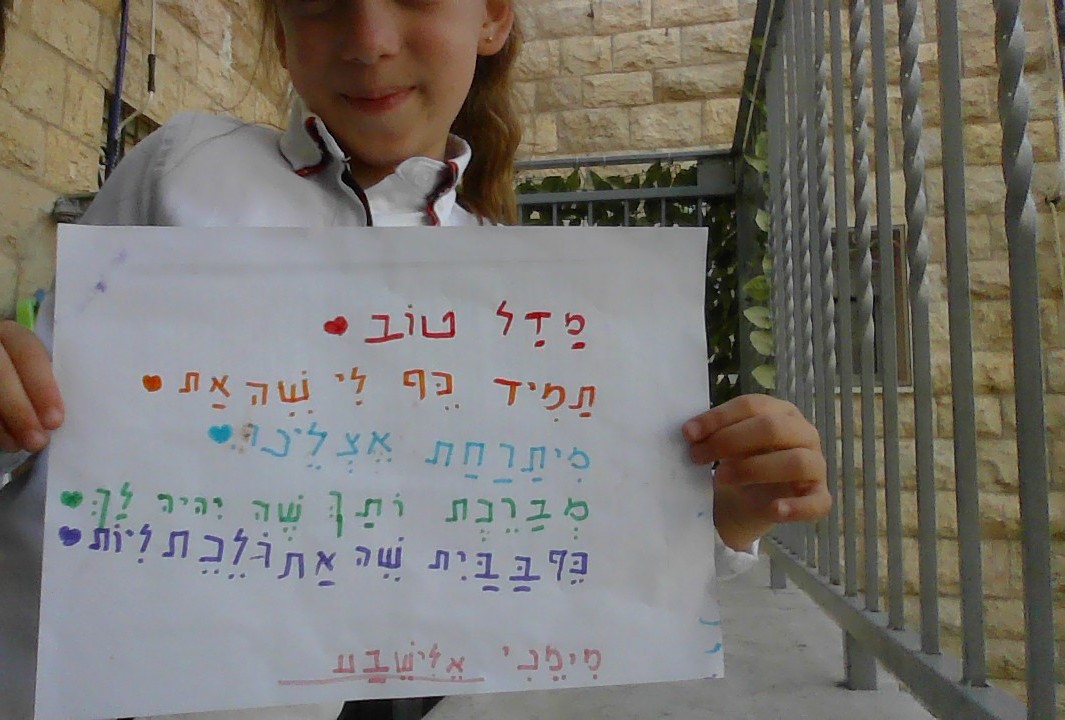 מַדַל טוֹב
תַמִיד כֵּף לִי שֶׁה אַת
מִיתַרַחַת אֶצְלֵינוּ
מְבַרֵכֶת וֹתַךְ שֶׁה יִהיה לַךְ
כֵּף בַּבַּיִת שֶׁה אַת הֹלֵכֶת לִיוֹת
מִימֶנִי אֵלִישֶׁבַע